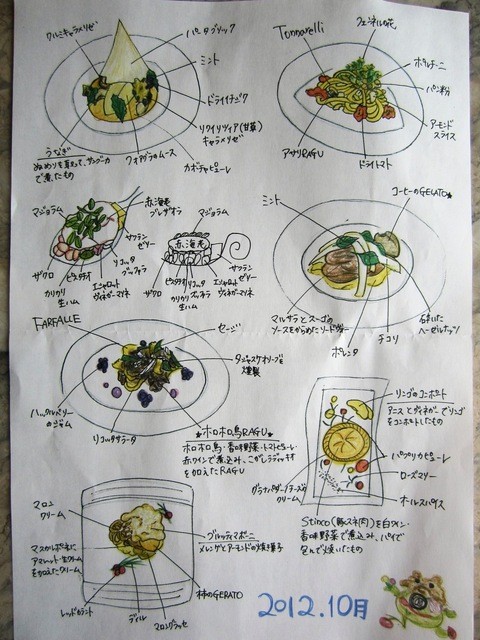 クルミキャラメリゼ
パータブリック
ミント
ドライイチジク
リクイリツィア(甘草)
キャラメリゼ
カボチャピューレ
フォアグラのムース
うなぎ
で煮たもの
Tonnarelli
フェンネルの花
ポルチーニ
パン粉
アーモンド
スライス
ドライトマト
アサリRAGU
マジョラム
赤海老
ブレザオラ
サフラン
ゼリー
リコッタ
ブッファラ
エシャロット
ヴィネガーマリネ
ピスタチオ
カリカリ
生ハム
ザクロ
マジョラム
赤海老
サフラン
ゼリー
エシャロット
ヴィネガーマリネ
リコッタ
ブッファラ
ピスタチオ
カリカリ
生ハム
ザクロ
ミント
コーヒーのGELATO★
マルサラとスーゴの
ソースをからめたリードヴォー
ポレンタ
チコリ
ヘーゼルナッツ
FARFALLE
セージ
タジャスケオリーブを
燻製
ハックルベリー
のジャム
リコッタサラータ
★ホロホロ鳥RAGU★
ホロホロ鳥・香味野菜・トマトピューレ・
赤ワインで煮込み、こがしラディッキオ
を加えたRAGU
リンゴのコンポート
アニスとヴィネガーでリンゴ
をコンポートしたもの
パプリカピューレ
ローズマリー
オールスパイス
グラナパダーノチーズの
クリーム
Stinco(豚スネ肉)を白ワイン・
香味野菜で煮込み、パイで
包んで焼いたもの
マロン
クリーム
マスカルポーネに
アマレット・生クリーム
を加えたクリーム
ブルッティマボーニ
メレンゲとアーモンドの焼き菓子
柿のGERATO
レッドカラント
ディル
マロングラッセ
2012.10月